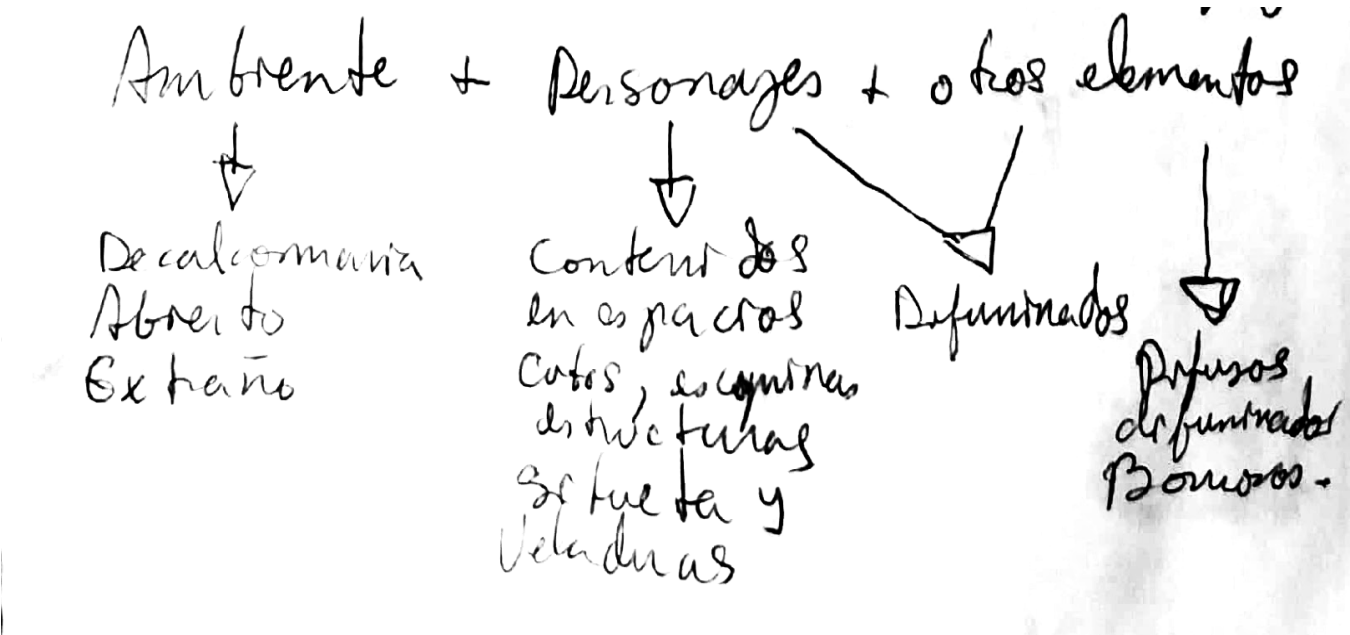 Ambiente + Personajes + otros elementos
Decalcomania
Abierto
Extraño
Contenidos
en espacios
, esquinas
estructuras
Silueta y
Veladuras
Difuminados
Difusos
difuminados
Borrosos.